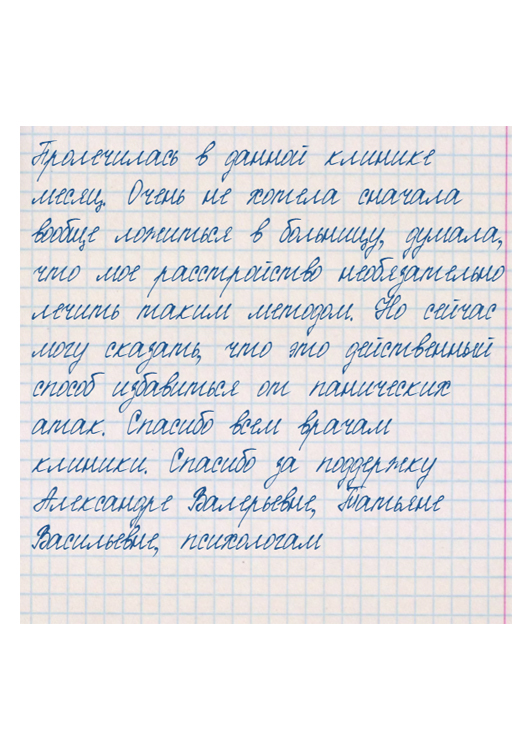 Пролечилась в данной клинике
месяц. Очень не хотела сначала
вообще ложиться в больницу, думала,
что мое расстройство необязательно
лечить таким методом. Но сейчас
могу сказать, что это действенный
способ избавиться от панических
атак. Спасибо всем врачам
клиники. Спасибо за поддержку
Александре Валерьевне, Татьяне
Васильевне, психологам